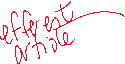 efferent
article